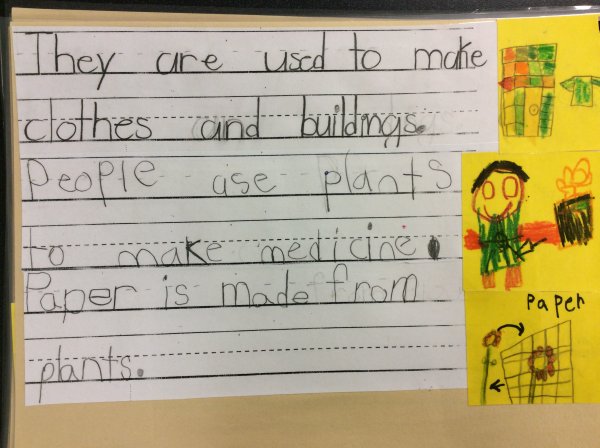 They are used to make
clothes and buildings.
People use plants
to make medicine.
Paper is made from
plants.
Paper